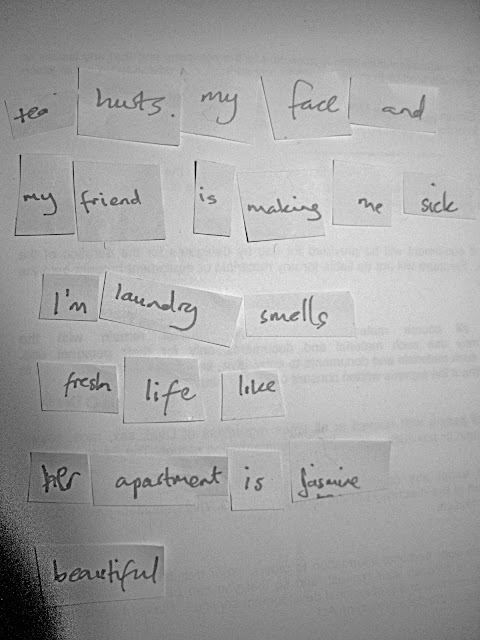 tea hurts. my face and
my friend is making me sick
I'm laundry smells
fresh life like
her apartment is jasmine
beautiful